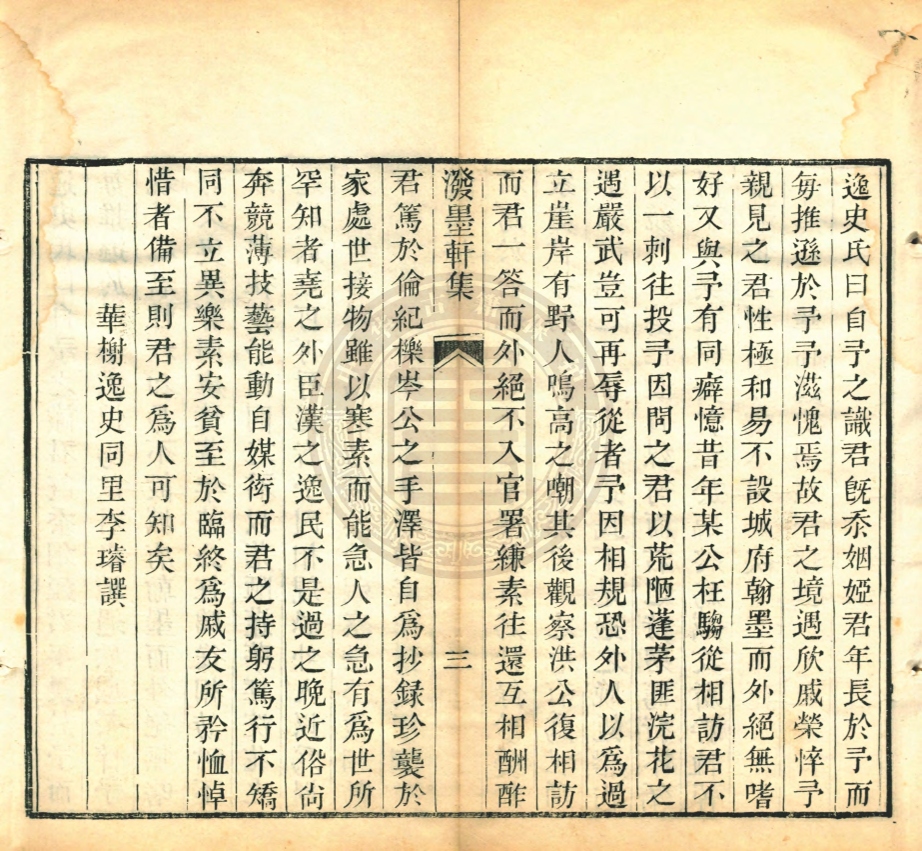 逸史氏曰自予之識君旣忝姻婭君年長於予而
每推遜於予予滋愧焉故君之境遇欣戚榮悴予
親見之君性極和易不設城府翰墨而外絕無嗜
好又與予有同癖憶昔年某公枉騶從相訪君不
以一刺往投予因問之君以荒陋蓬茅匪浣花之
遇嚴武豈可再辱從者予因相規恐外人以爲過
立崖岸有野人鳴高之嘲其後觀察洪公復相訪
而君一答而外絕不入官署縑素往還互相酬酢
潑墨軒集 三
君篤於倫紀櫟岑公之手澤皆自爲抄録珍襲於
家處世接物雖以寒素而能急人之急有爲世所
罕知者堯之外臣漢之逸民不是過之晩近俗尙
奔競薄技藝能動自媒衒而君之持躬篤行不矯
同不立異樂素安貧至於臨終爲戚友所矜恤悼
惜者備至則君之爲人可知矣
華榭逸史同里李璿譔